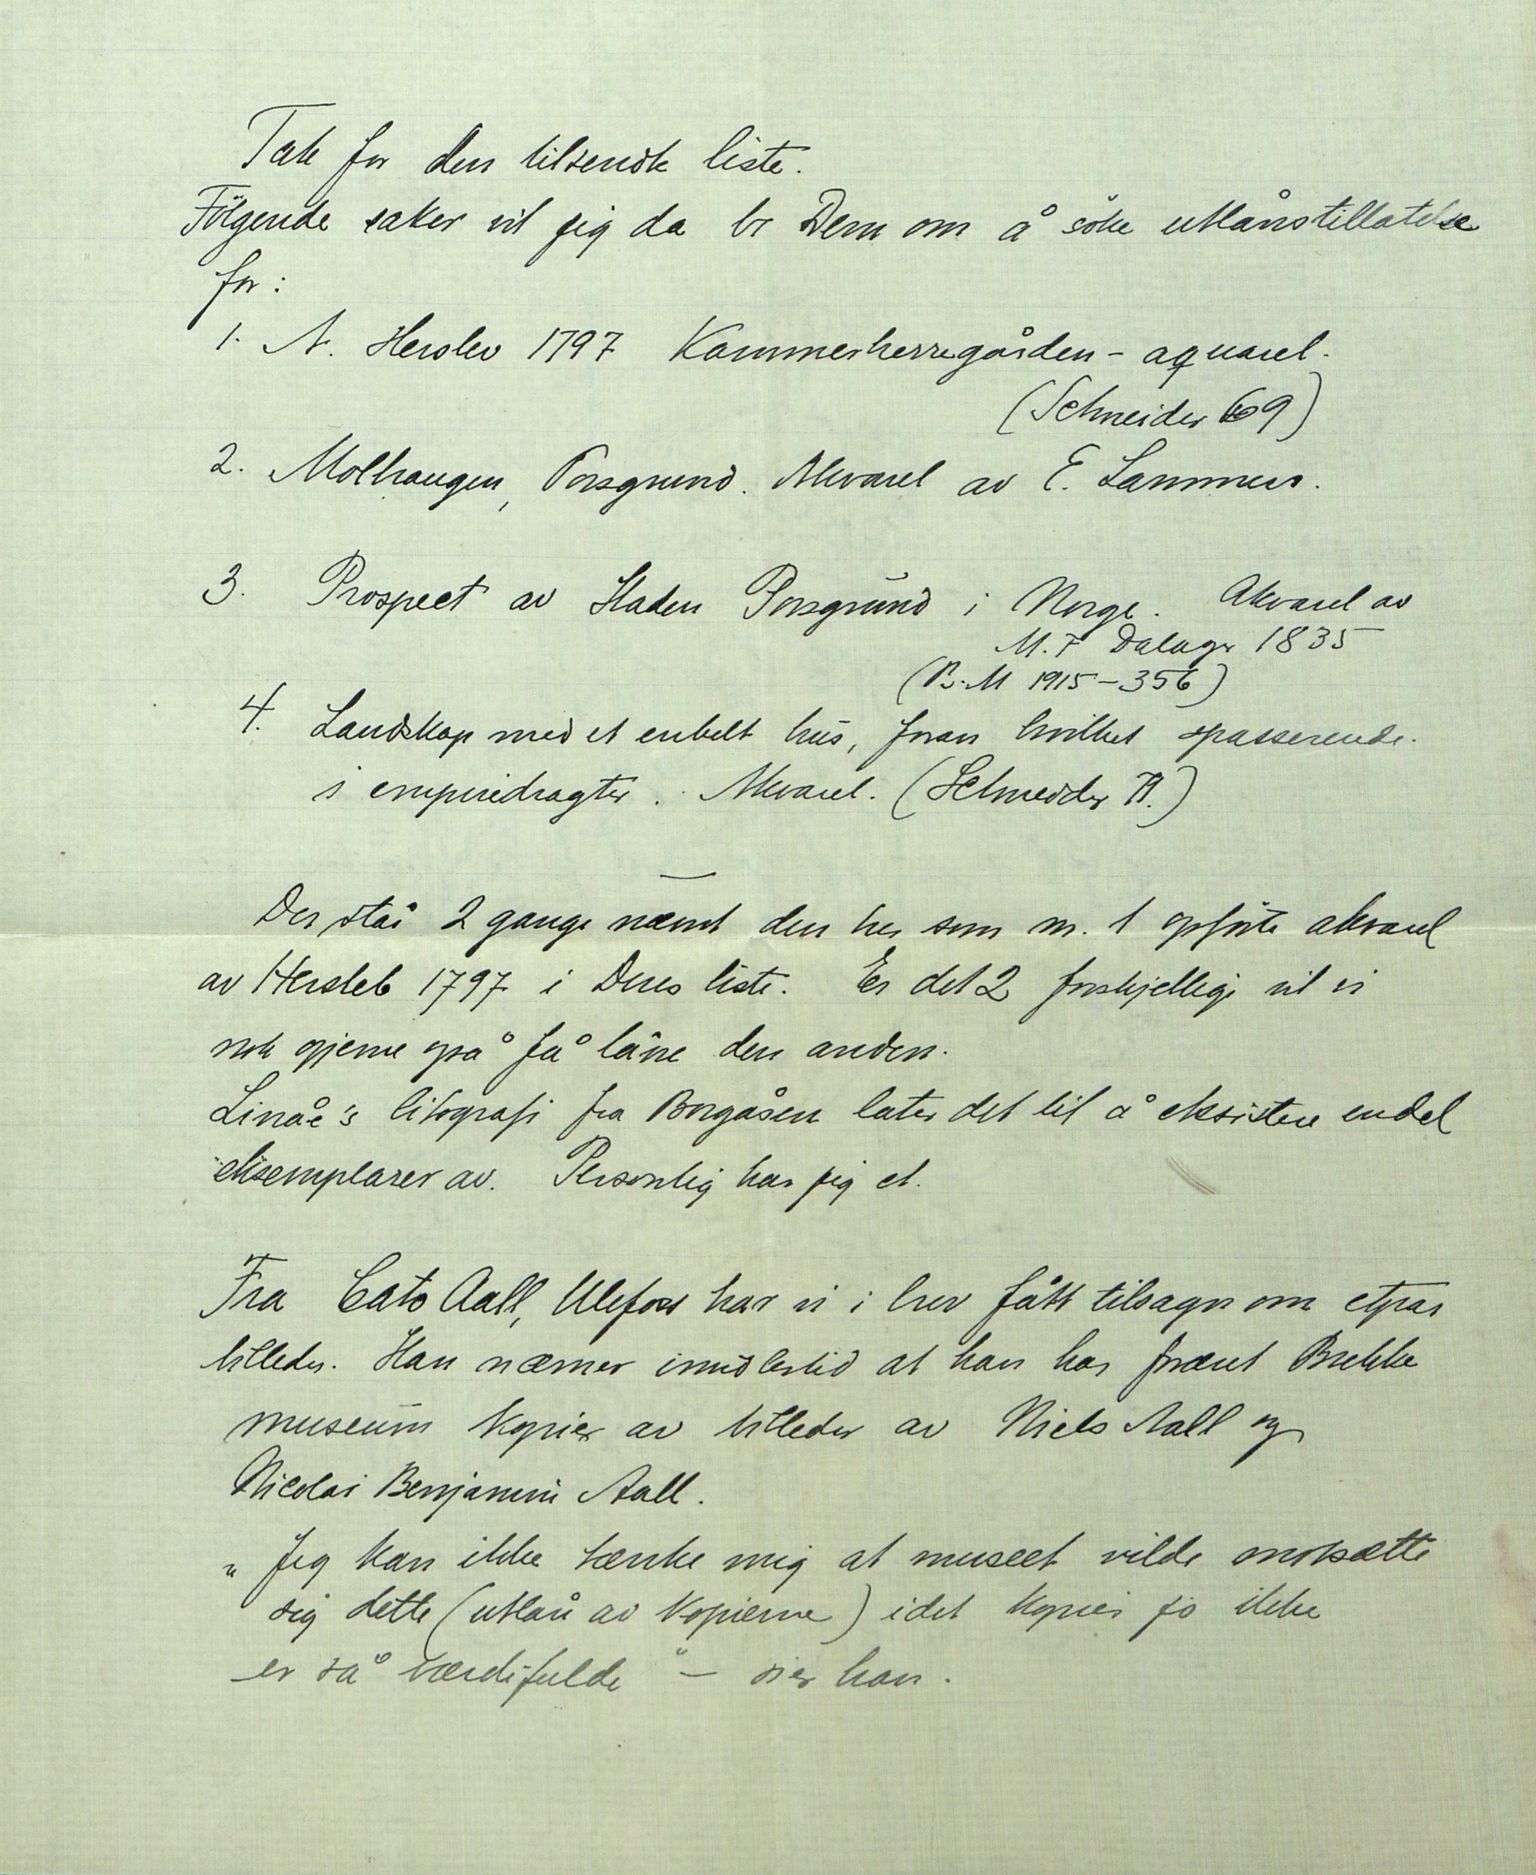 Tak for den tilsendte liste.
Følgende saker vil jeg da be Dem om å søke utlånstillatelse
for:
1. N. Herslev 1797 Kammerherregården – aquarel.
(Schneider 69)
2. Molhaugen, Porsgrund. Akvarel av E. Lammers.
3. Prospect av Staden Porsgrund i Norge. Akvarel av
M. F Dalager 1835
(B.M 1915–356)
4. Landskap med et enkelt hus, foran hvilket spasserende
i empiredragter. Akvarel. (Schneider)
Der står 2 gange nævnt den her som nr. 1 opførte akvarel
av Hersleb 1797 i Deres liste. Er det 2 forskjellige vil vi
nok gjerne også få låne den anden.
Linåe's litografi fra Borgåsen later det til å eksistere endel
eksemplarer av. Personlig har jeg et.
Fra Cato Aall, Ulefoss har vi i brev fått tilsagn om etpar
billeder. Han nævner imidlertid at han har foræret Brekke
museum kopier av billeder av Niels Aall og
Nicolai Benjamin Aall.
„Jeg kan ikke tænke mig at museet vilde motsætte
sig dette (utlån av kopierne) idet kopier jo ikke
er så værdifulde" – sier han.